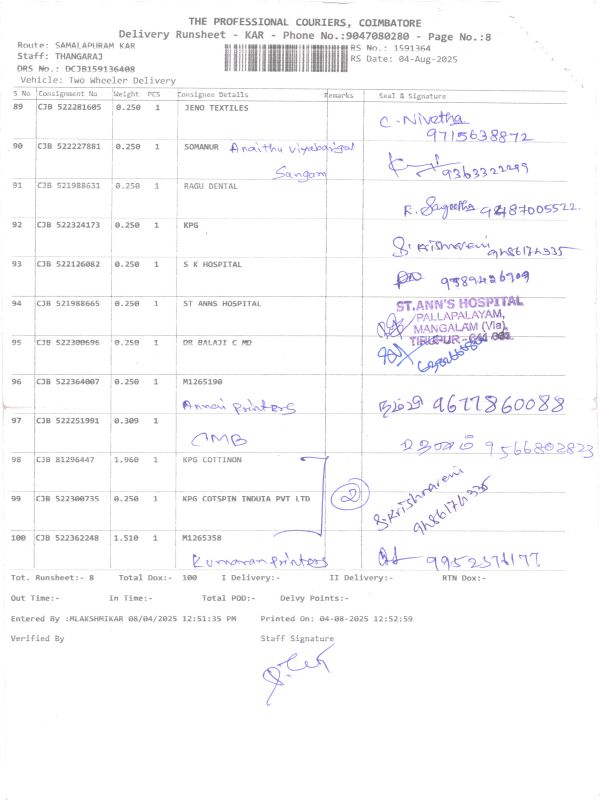 THE PROFESSIONAL COURIERS, COIMBATORE
Delivery Runsheet - KAR - Phone No.:9047080280 - Page No.:8
Route: SAMALAPURAM KAR RS No.: 1591364
Staff: THANGARAJ RS Date: 04-Aug-2025
DRS No.: DCJB159136408
Vehicle: Two Wheeler Delivery
S No Consignment No Weight PCS Consignee Details Remarks Seal & Signature
89 CJB 522281605 0.250 1 JENO TEXTILES C. Nivetha
9715638872
90 CJB 522227881 0.250 1 SOMANUR Anaithu viyabarigal
Sangam 9363322299
91 CJB 521988631 0.250 1 RAGU DENTAL
R. Sageetha 9487005522.
92 CJB 522324173 0.250 1 KPG S. Krishnaveni
93 CJB 522126082 0.250 1 S K HOSPITAL
94 CJB 521988665 0.250 1 ST ANNS HOSPITAL ST.ANN'S HOSPITAL
PALLAPALAYAM,
MANGALAM (Via),
95 CJB 522300696 0.250 1 DR BALAJI C MD TIRUPUR
96 CJB 522364007 0.250 1 M1265190
Annai printers 9677860088
97 CJB 522251991 0.309 1
CMB 9566802823
98 CJB 81296447 1.960 1 KPG COTTINON
2
99 CJB 522300735 0.250 1 KPG COTSPIN INDUIA PVT LTD S. Krishnaveni
100 CJB 522362248 1.510 1 M1265358
Kumaran printers
Tot. Runsheet:- 8 Total Dox:- 100 I Delivery:- II Delivery:- RTN Dox:-
Out Time:- In Time:- Total POD:- Delvy Points:-
Entered By :MLAKSHMIKAR 08/04/2025 12:51:35 PM Printed On: 04-08-2025 12:52:59
Verified By Staff Signature